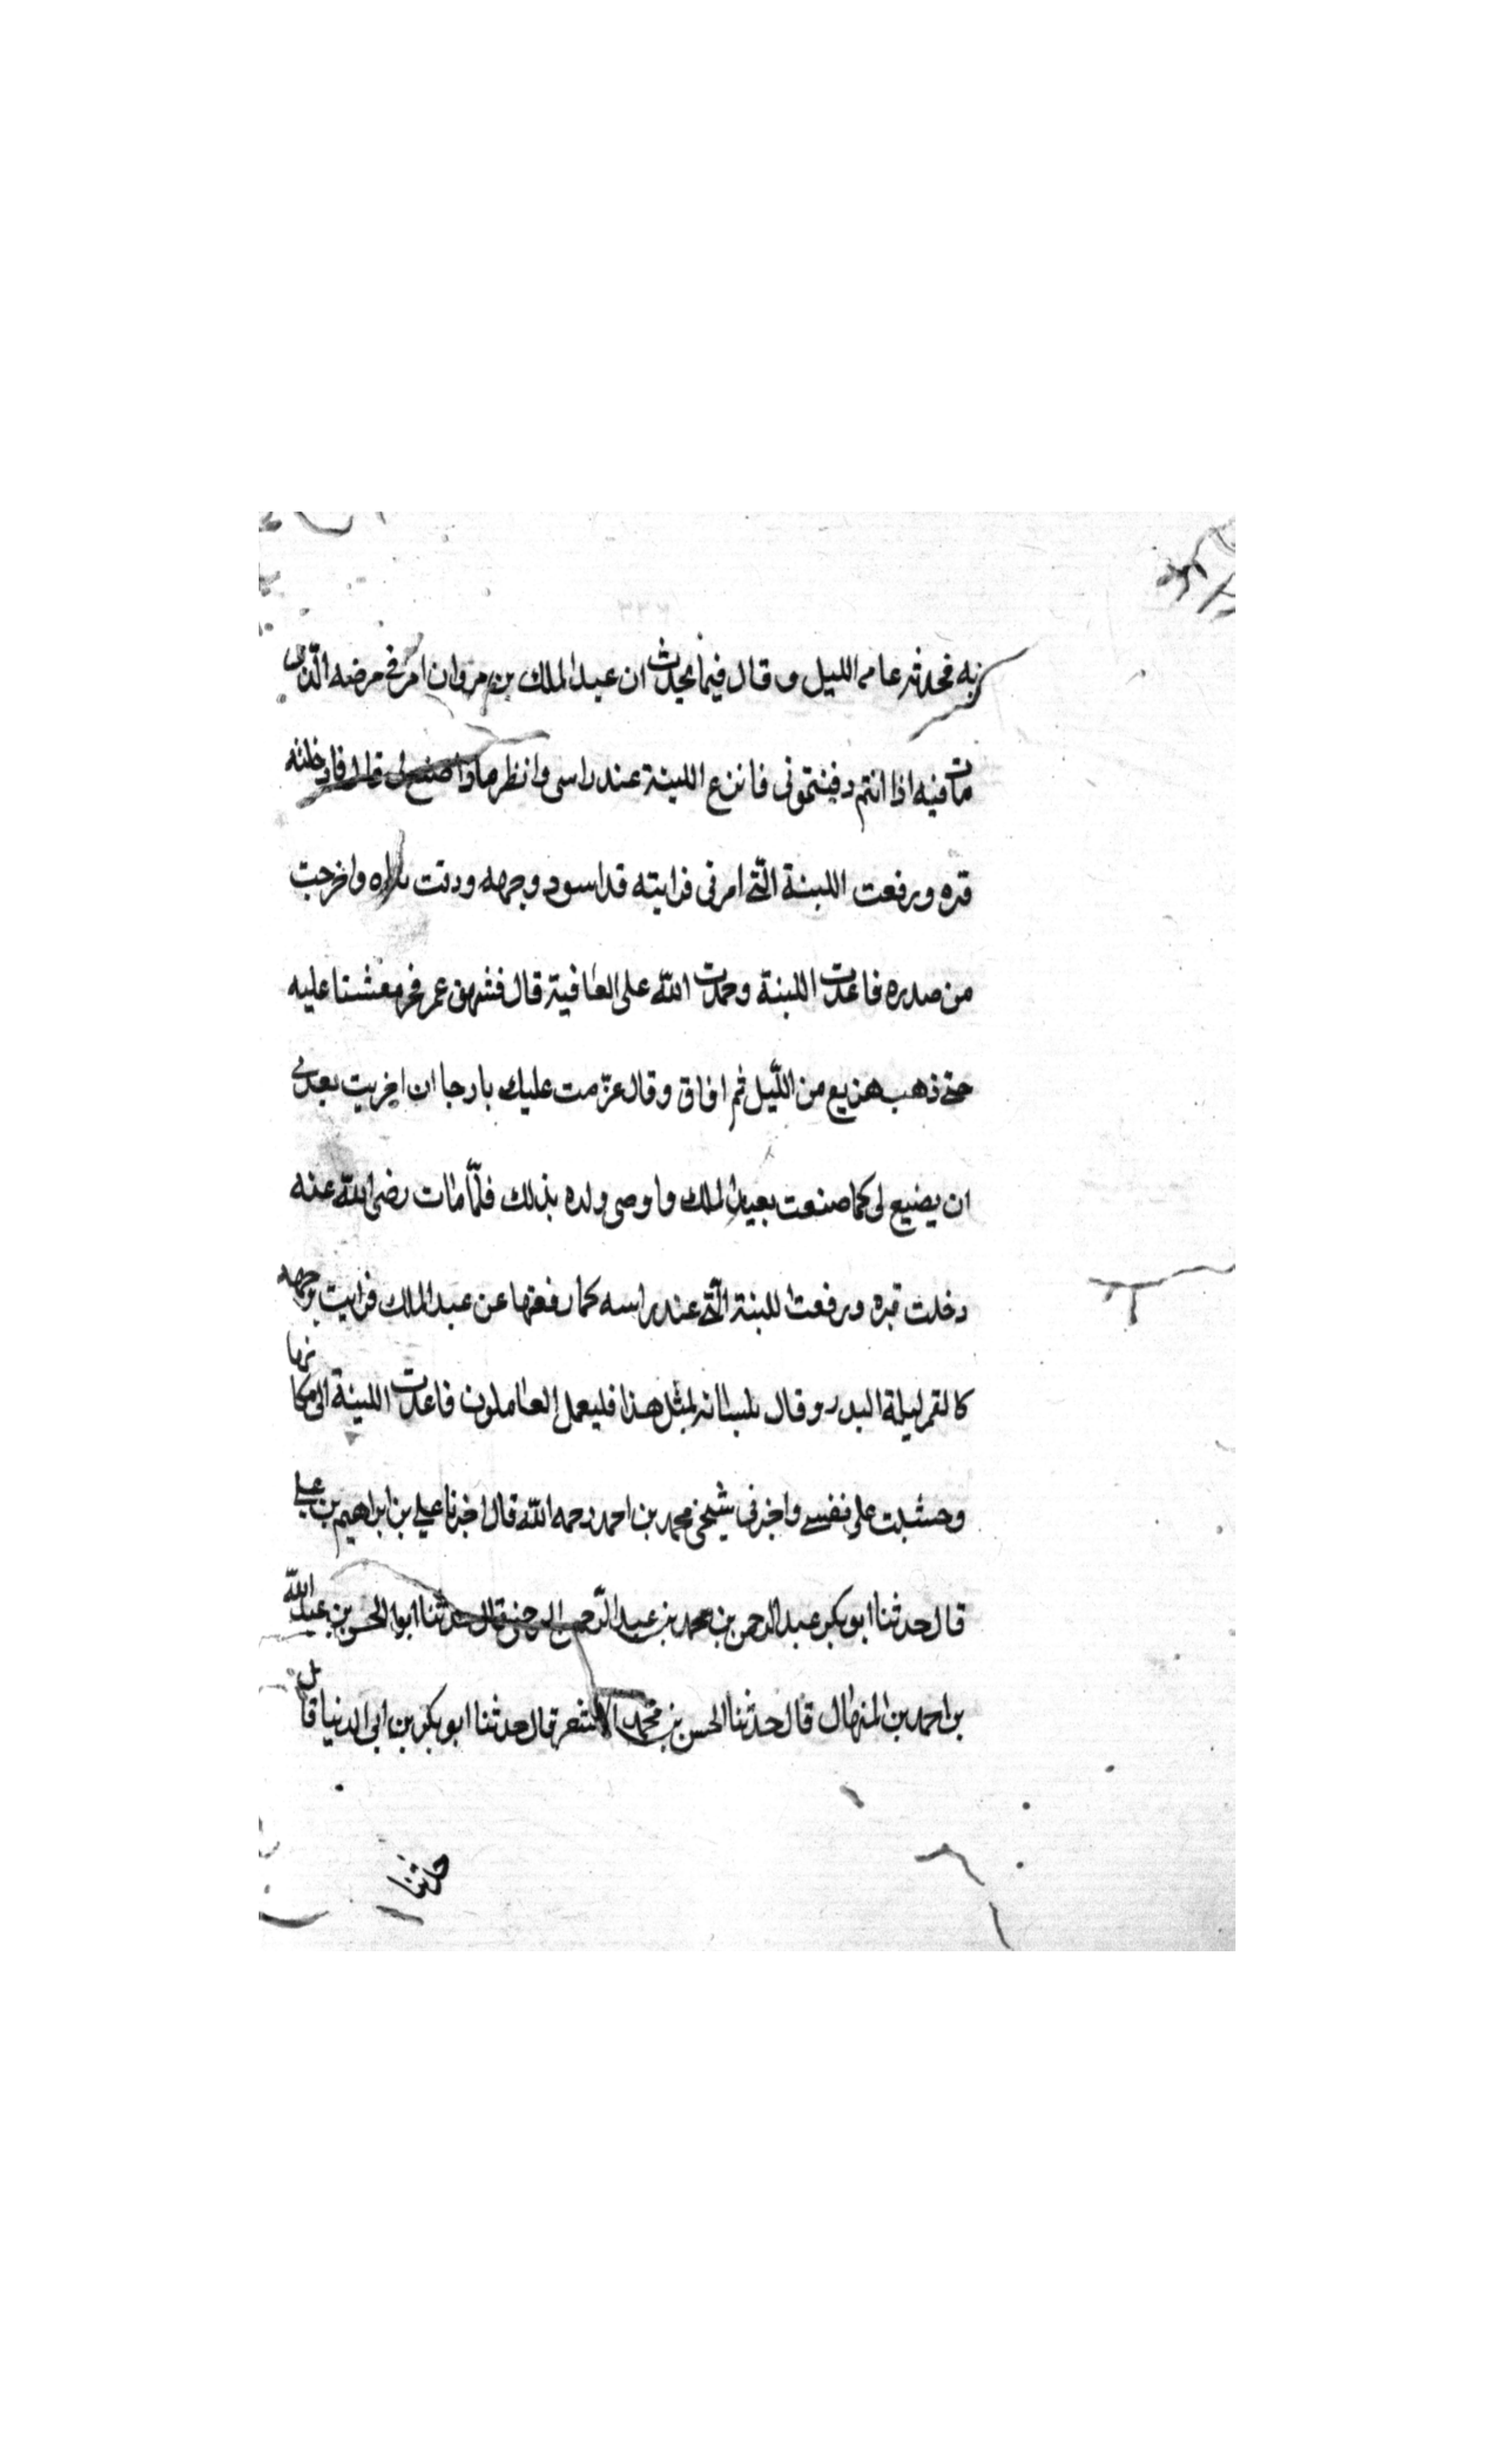 به فحدثه عامه الليل وقال فيما يحدث ان عبد الملك بن مروان امرني في مرضه الذي
مات فيه اذا انتم دفنتموني فانزع اللبنة عند راسي وانظر ماذا صنع لي قال فادخلته
قبره ورفعت اللبنة التي امرني فرايته قد اسود وجهه واخرجت
من صدره فاعدت اللبنة وحمدت الله على العافية قال فشهق عمر فخر مغشيا عليه
حتى ذهب هزيع من الليل ثم افاق وقال عزمت عليك يا رجا ان اخريت بعدي
ان يضيع لي كما صنعت بعبد الملك واوصى ولده بذلك فلما مات رضي الله عنه
دخلت قبره ورفعت اللبنة التي عند راسه كما رفعتها عن عبد الملك فرايت وجهه
كالقمر ليلة البدر وقال بلسانه لمثل هذا فليعمل العاملون فاعدت اللبنة الى مكانها
على نفسي واخبرني شيخي محمد بن احمد رحمه الله قال اخبرنا علي بن ابراهيم بن علي
قال حدثنا ابو بكر عبد الرحمن بن محمد بن عبد الرحمن قال حدثنا ابو الحسن بن عبد الله
بن احمد بن المنهال قال حدثنا الحسن بن محمد قال حدثنا ابو بكر بن ابي الدنيا قال
حدثنا